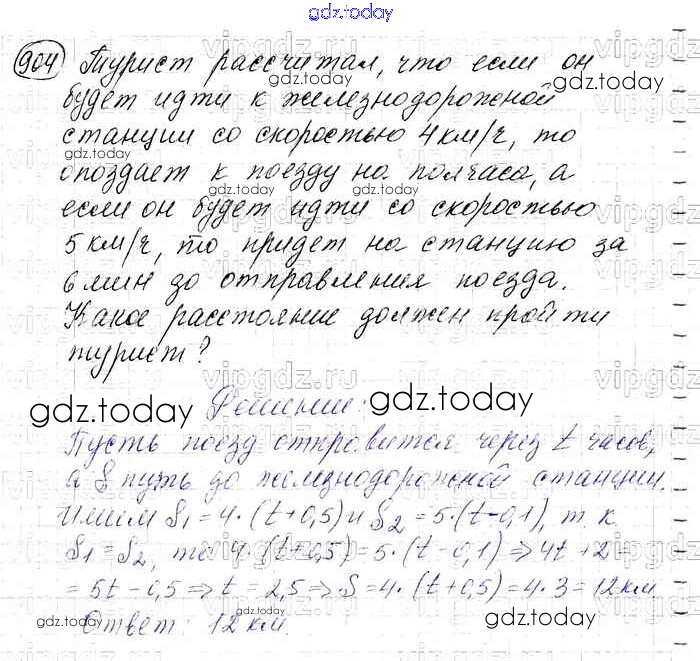 gdz.today
904 Турист рассчитал, что если он
будет идти к железнодорожной
станции со скоростью 4 км/ч, то
опоздает к поезду на полчаса, а
если он будет идти со скоростью
5 км/ч, то придет на станцию за
6 мин до отправления поезда.
Какое расстояние должен пройти
турист?
Решение:
Пусть поезд отправится через t часов,
а S путь до железнодорожной станции.
Имеем S₁ = 4·(t+0,5) и S₂ = 5·(t-0,1), т. к
S₁ = S₂, то 4·(t+0,5) = 5·(t-0,1) ⇒ 4t + 2 =
= 5t - 0,5 ⇒ t = 2,5 ⇒ S = 4·(t+0,5) = 4·3 = 12 км
Ответ: 12 км.